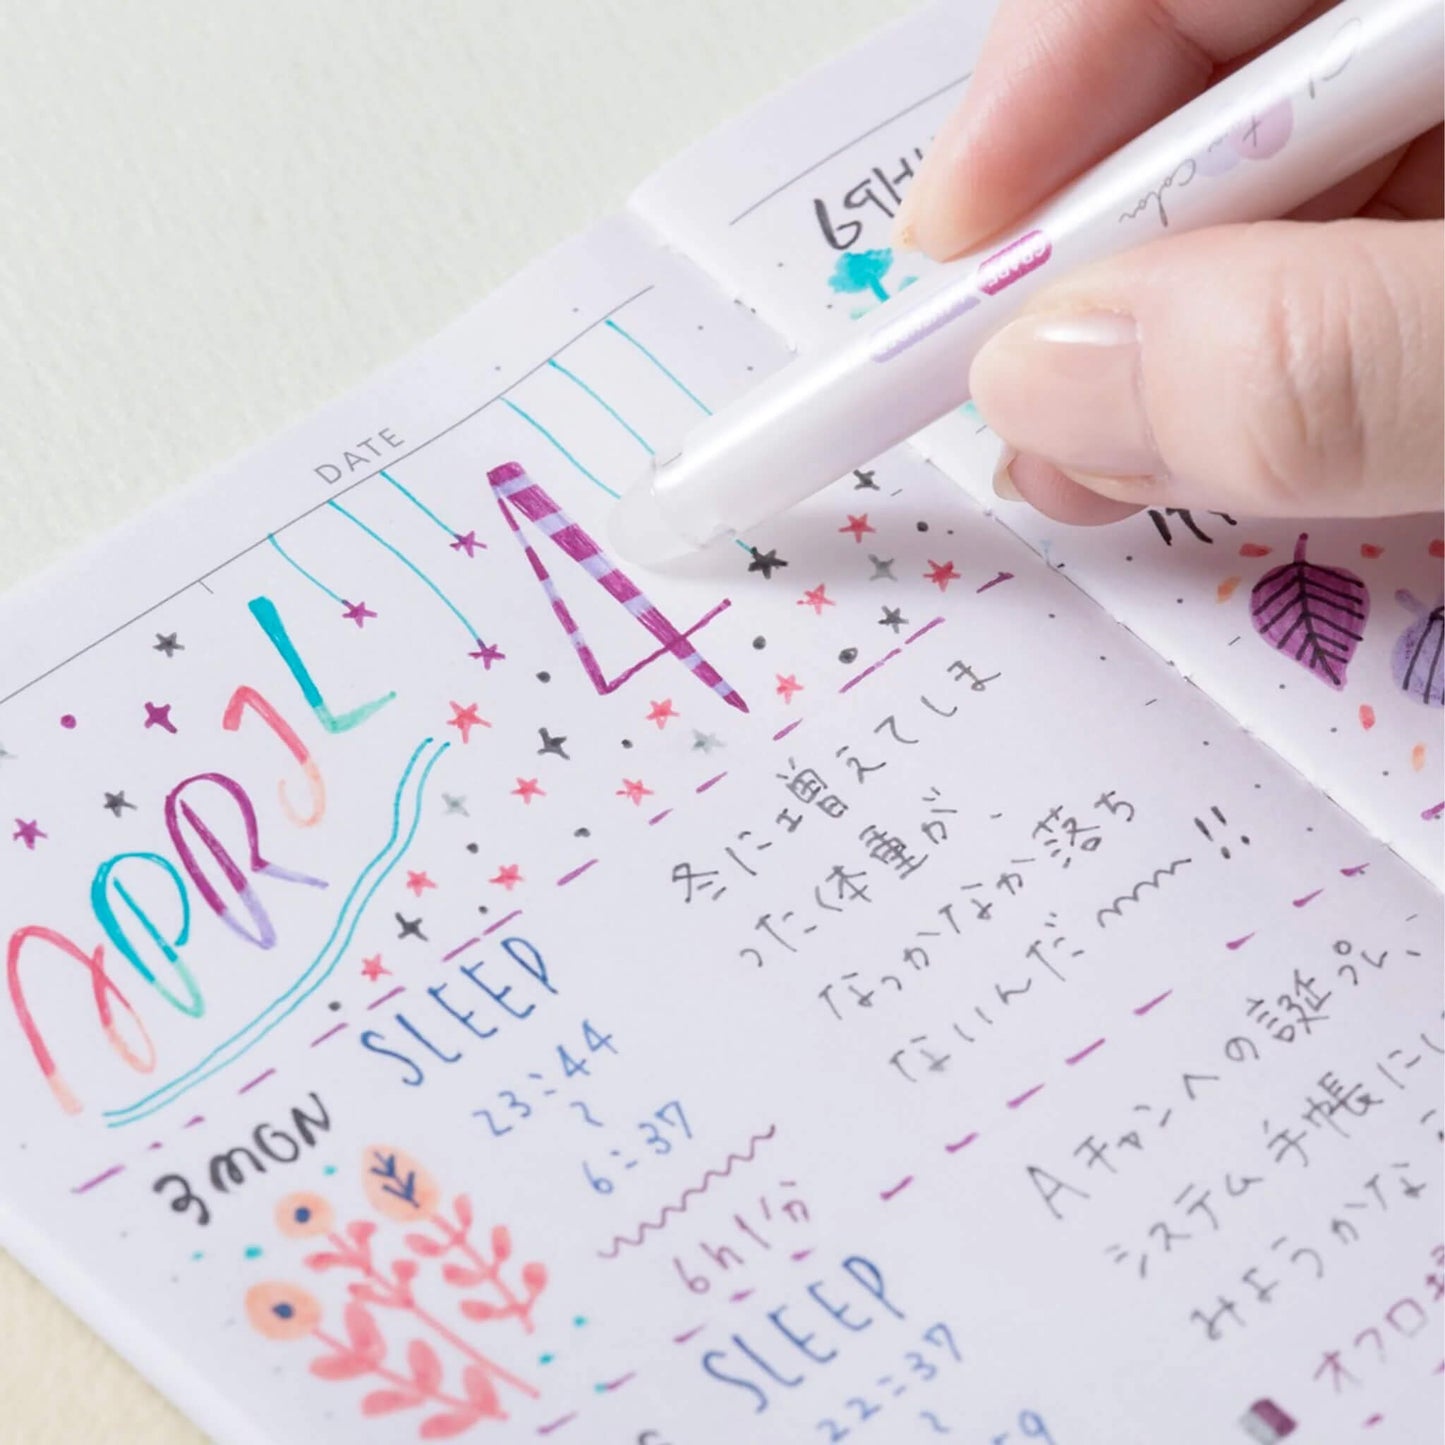 DATE
APRIL
4
3 MON
SLEEP
23:44
6:37
6h
SLEEP
22:37
冬に増えてしま
った体重が、
なっかなか落ち
ないんだ〜〜!!
Aチャンへの誕プレ、
システム手帳に
みようかな
オフロ
Color
GRAPE